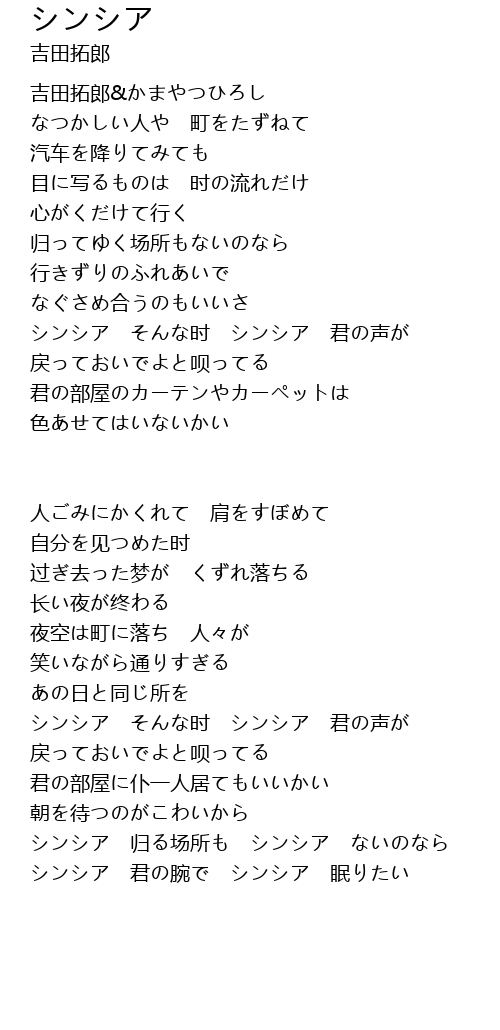 シンシア
吉田拓郎
吉田拓郎&かまやつひろし
なつかしい人や　町をたずねて
汽车を降りてみても
目に写るものは　时の流れだけ
心がくだけて行く
归ってゆく场所もないのなら
行きずりのふれあいで
なぐさめ合うのもいいさ
シンシア　そんな时　シンシア　君の声が
戻っておいでよと呗ってる
君の部屋のカーテンやカーペットは
色あせてはいないかい
人ごみにかくれて　肩をすぼめて
自分を见つめた时
过ぎ去った梦が　くずれ落ちる
长い夜が终わる
夜空は町に落ち　人々が
笑いながら通りすぎる
あの日と同じ所を
シンシア　そんな时　シンシア　君の声が
戻っておいでよと呗ってる
君の部屋に仆一人居てもいいかい
朝を待つのがこわいから
シンシア　归る场所も　シンシア　ないのなら
シンシア　君の腕で　シンシア　眠りたい